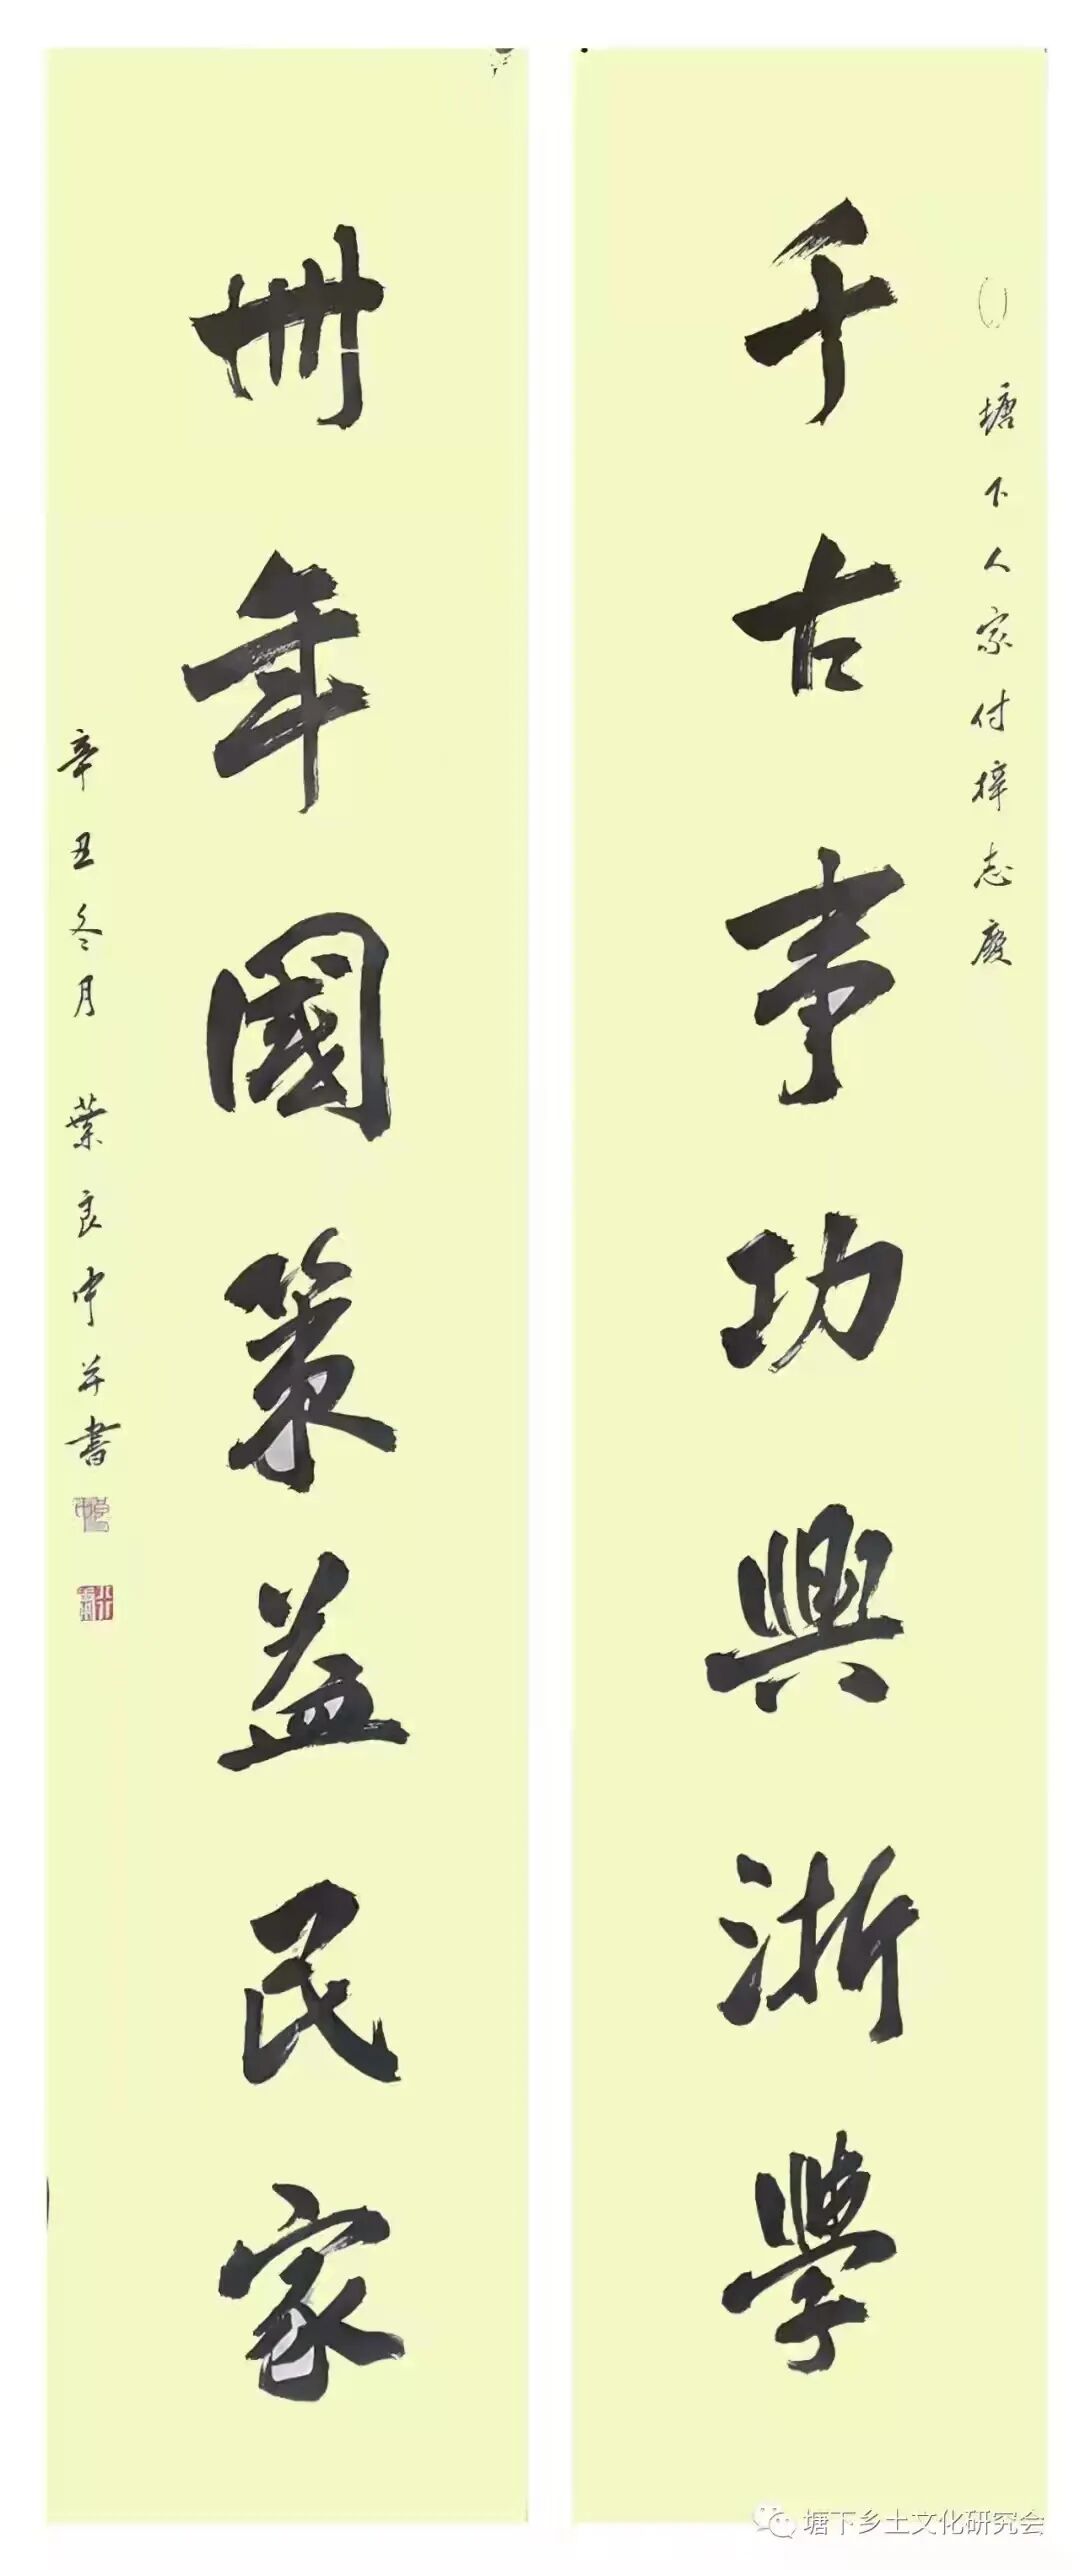 塘下人家付梓志慶
千古事功興浙學
卌年國策益民家
辛丑冬月 葉良中并書
塘下乡土文化研究会